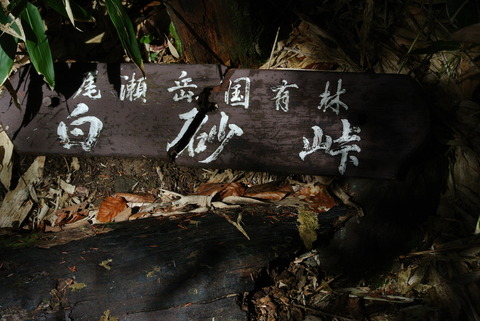 尾瀬岳国有林
白砂峠